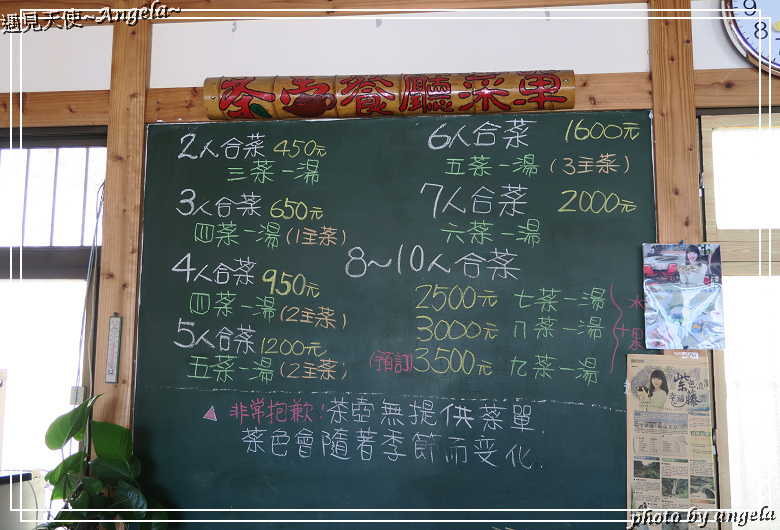 遇見天使~Angela~
茶壺餐廳菜單
2人合菜 450元
三菜一湯
3人合菜 650元
四菜一湯(1主菜)
4人合菜 950元
四菜一湯(2主菜)
5人合菜 1200元
五菜一湯(2主菜)
6人合菜 1600元
五菜一湯(3主菜)
7人合菜 2000元
六菜一湯
8~10人合菜
2500元 七菜一湯
3000元 八菜一湯
(預訂)3500元 九菜一湯
+水果
▲ 非常抱歉!茶壺無提供菜單.
菜色會隨著季節而变化.
紫色
幸福
藤
photo by angela